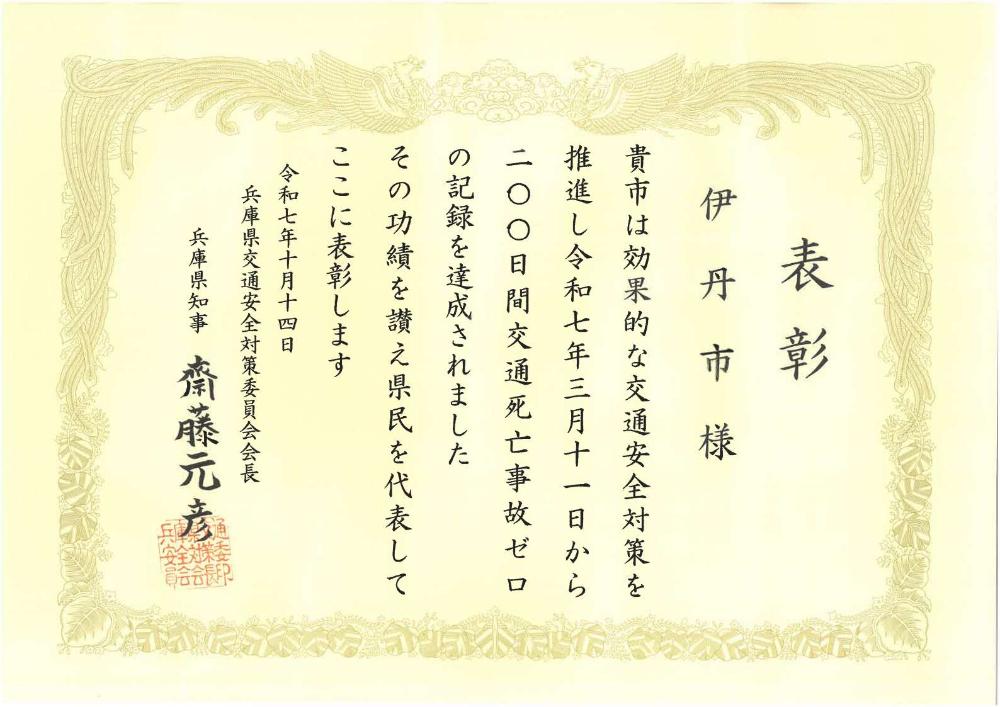 表彰
伊丹市様
貴市は効果的な交通安全対策を
推進し令和七年三月十一日から
二〇〇日間交通死亡事故ゼロ
の記録を達成されました
その功績を讃え県民を代表して
ここに表彰します
令和七年十月十四日
兵庫県交通安全対策委員会会長
兵庫県知事 齋藤元彦